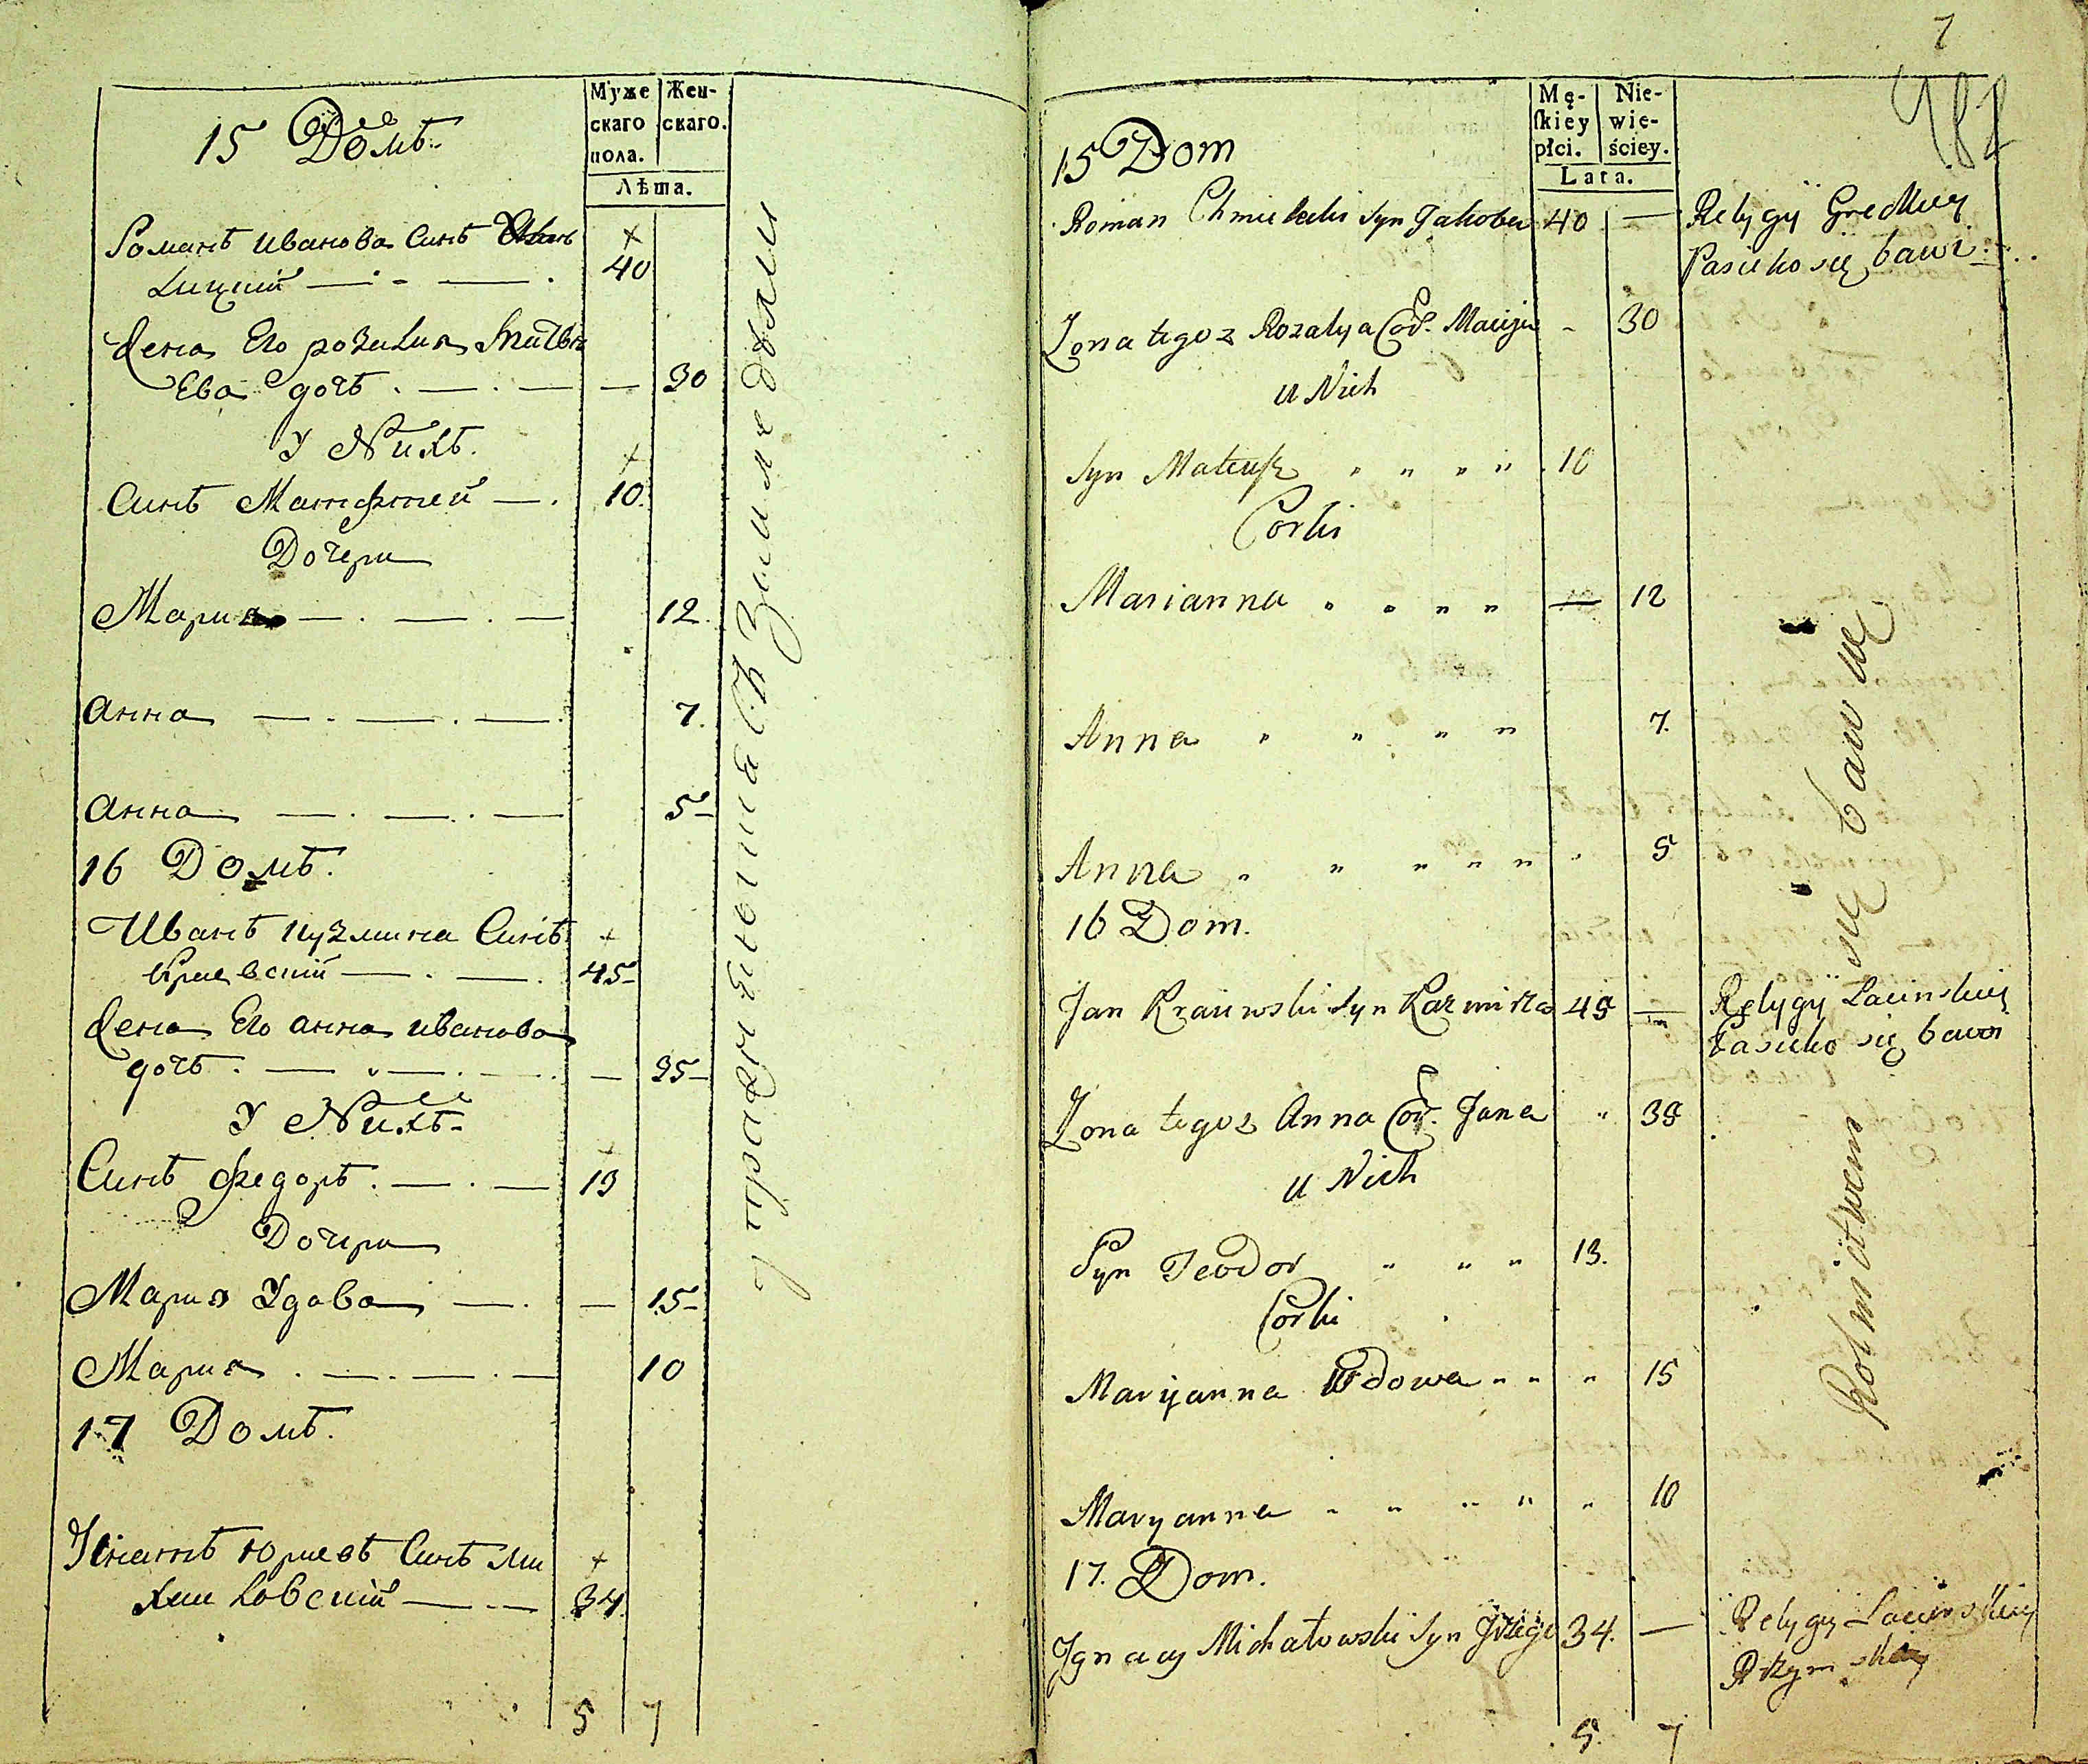 15 Домъ.
Муже
скаго
пола.
Жен-
скаго.
Лѣта.
Романъ Иванова Синъ
лицкий — 40
Жена Его розалия Матве
Ева дочь — 30
У Нихъ.
Синъ Матфтей — 10.
Дочери
Мария — 12.
Анна — 7.
Анна — 5
16 Домъ.
Иванъ Кузмина Синъ
Краевский — 45
Жена Его анна иванова
дочъ — 35
У Нихъ
Синъ Федоръ. — 13
Дочери
Мария Удова — 15
Мария — 10
17 Домъ.
Игнатъ Юриевъ Синъ Ми
хиловский — 34.
5 7
7
15 Dom
Mę-
ſkiey
płci.
Nie-
wie-
ściey.
Lata.
Roman Syn Jakoba 40 — Relygÿ Greckiey
Pasieko się bawi
Zona tegoz Rozalya Cor. Macieja 30
u Nich
Syn Mateusz " " " " 10
Corki
Marianna " " " " 12
Anna " " " " 7.
Anna " " " " " 5
16 Dom.
Jan Kraiewski Syn Kazmirza 45 — Relygÿ Lacinskiey
Pasieko się bawi
Zona tegoz Anna Cor. Jana " 35
u Nich
Syn Teodor " " " 13.
Corki
Maryanna Wdowa " " " 15
Maryanna " " " " " 10
17. Dom.
Ignacy Michałowski Syn 34. — Relygÿ Lacinskiey
Rzymskey
Rolnictwem się bawię
5. 7